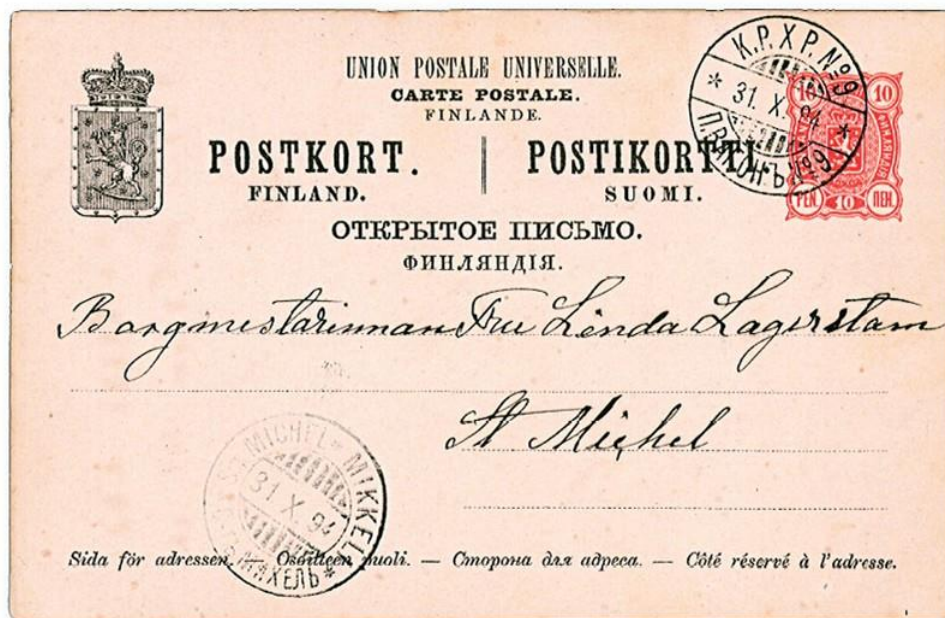 UNION POSTALE UNIVERSELLE.
CARTE POSTALE.
FINLANDE.
POSTKORT. POSTIKORTTI.
FINLAND. SUOMI.
ОТКРЫТОЕ ПИСЬМО.
ФИНЛЯНДІЯ.
K.P.X.P. No 9
31. X. 94
П.ВАГОНЪ No 9
10 10
PEN 10 ПЕН.
ФИНЛЯНДІЯ
Borgmestarinnan Fru Linda Lagerstam
St Michel
ST MICHEL * MIKKELI
31 X 94
МИХЕЛЬ *
Sida för adressen. — Osoitteen puoli. — Сторона для адреса. — Côté réservé à l'adresse.